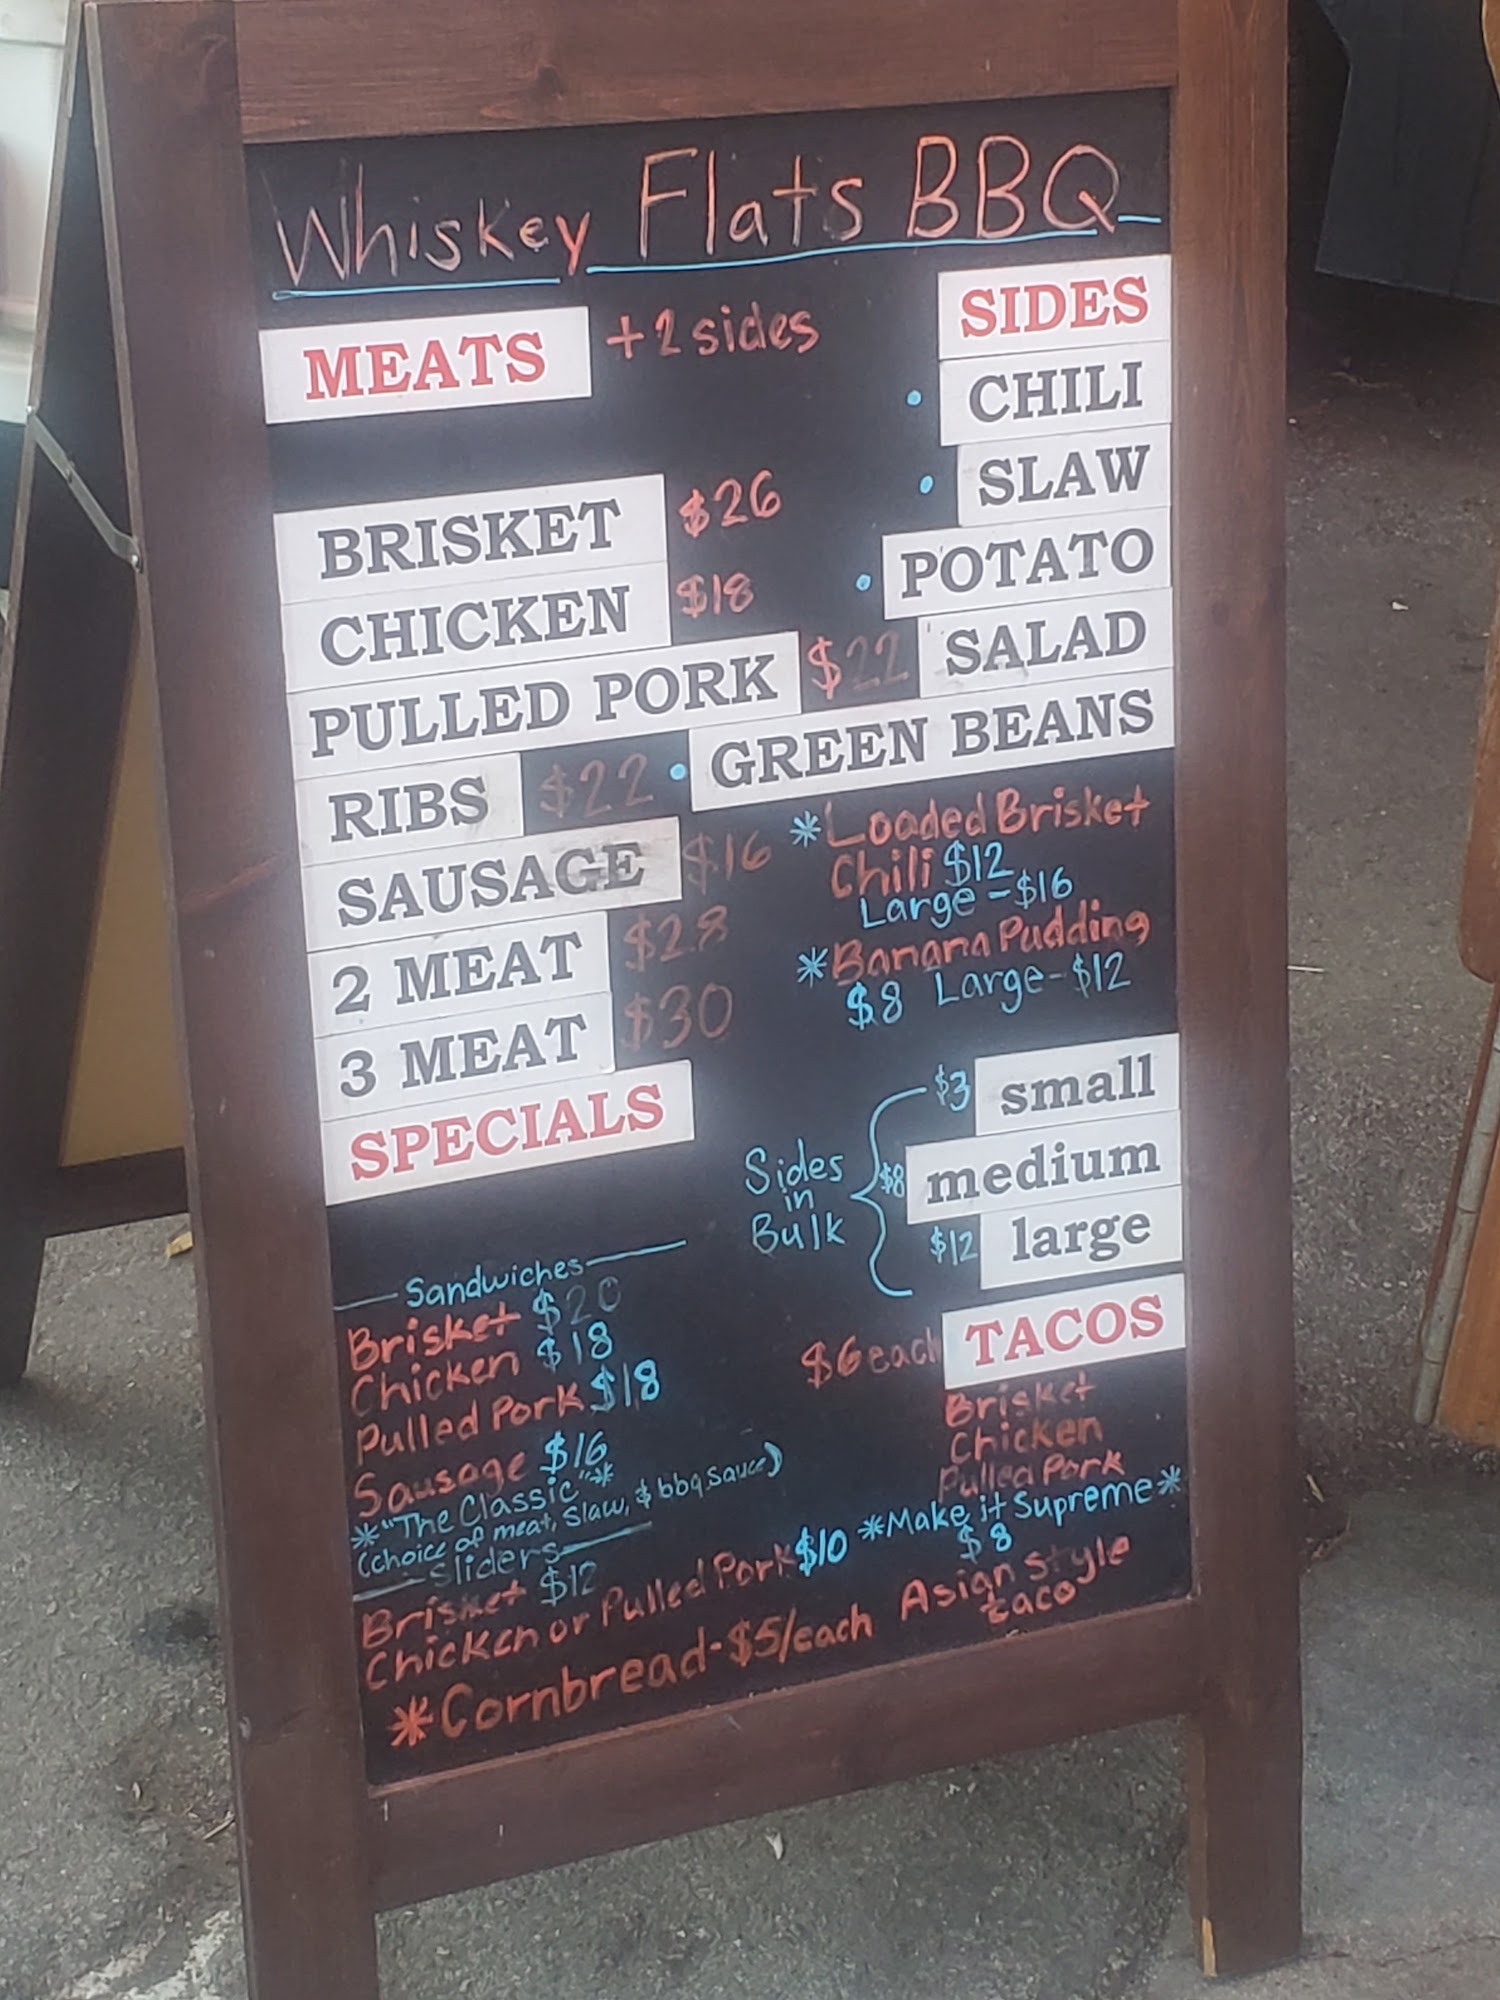 Whiskey Flats BBQ
MEATS +2 sides
BRISKET $26
CHICKEN $18
PULLED PORK $22
RIBS $22
SAUSAGE $16
2 MEAT $28
3 MEAT $30
SPECIALS
Sandwiches
Brisket $20
Chicken $18
Pulled Pork $18
Sausage $16
*"The Classic"*
(choice of meat, slaw, & bbq sauce)
Sliders
Brisket $12
Chicken or Pulled Pork $10
*Cornbread-$5/each
SIDES
• CHILI
• SLAW
• POTATO
SALAD
• GREEN BEANS
*Loaded Brisket
Chili $12
Large-$16
*Banana Pudding
$8 Large-$12
Sides
in
Bulk
$3 small
$8 medium
$12 large
$6 each TACOS
Brisket
Chicken
Pulled Pork
*Make it Supreme*
$8
Asian style
taco